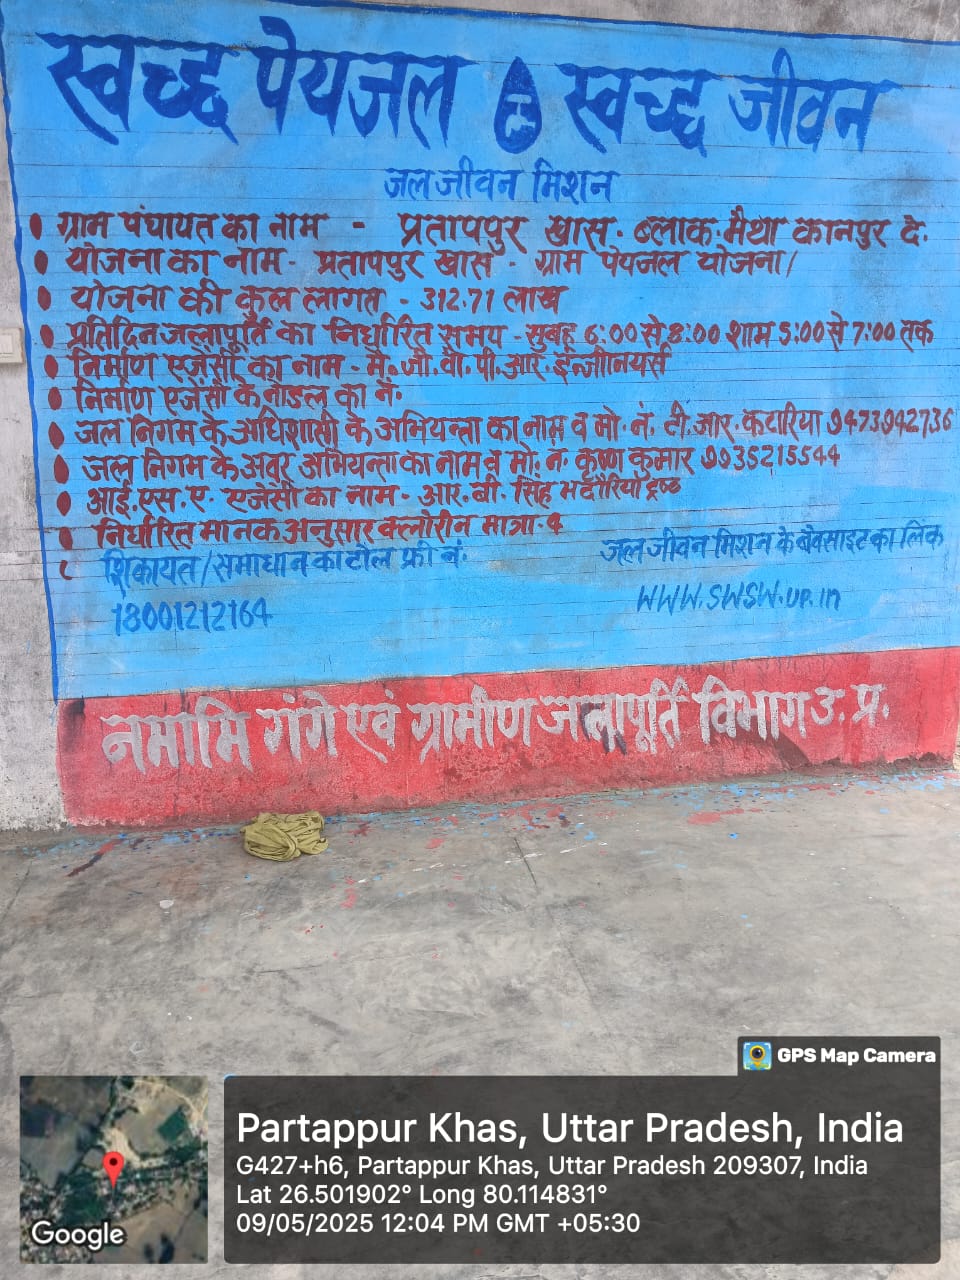 स्वच्छ पेयजल स्वच्छ जीवन
जल जीवन मिशन
ग्राम पंचायत का नाम - प्रतापपुर खास. ब्लाक. मैथा कानपुर दे.
योजना का नाम - प्रतापपुर खास - ग्राम पेयजल योजना/
योजना की कुल लागत - 312.71 लाख
प्रतिदिन जलापूर्ति का निर्धारित समय - सुबह 6:00 से 8:00 शाम 5:00 से 7:00 तक
निर्माण एजेंसी का नाम - मै. जी. वी. पी. आर. इन्जीनियर्स
निर्माण एजेंसी के नोडल का नं.
जल निगम के अधिशासी के अभियन्ता का नाम व मो. नं. टी. आर. कटारिया 9473942736
जल निगम के अवर अभियन्ता का नाम व मो. न. कृष्ण कुमार 9935215544
आई. एस. ए. एजेंसी का नाम - आर. बी. सिंह भदौरिया ट्रष्ठ
निर्धारित मानक अनुसार क्लोरीन मात्रा -
शिकायत/समाधान का टोल फ्री नं. जल जीवन मिशन के बैवसाइट का लिंक
18001212164 WWW.SWSW.UP.in
नमामि गंगे एवं ग्रामीण जलापूर्ति विभाग उ. प्र.
GPS Map Camera
Partappur Khas, Uttar Pradesh, India
G427+h6, Partappur Khas, Uttar Pradesh 209307, India
Lat 26.501902° Long 80.114831°
09/05/2025 12:04 PM GMT +05:30
Google